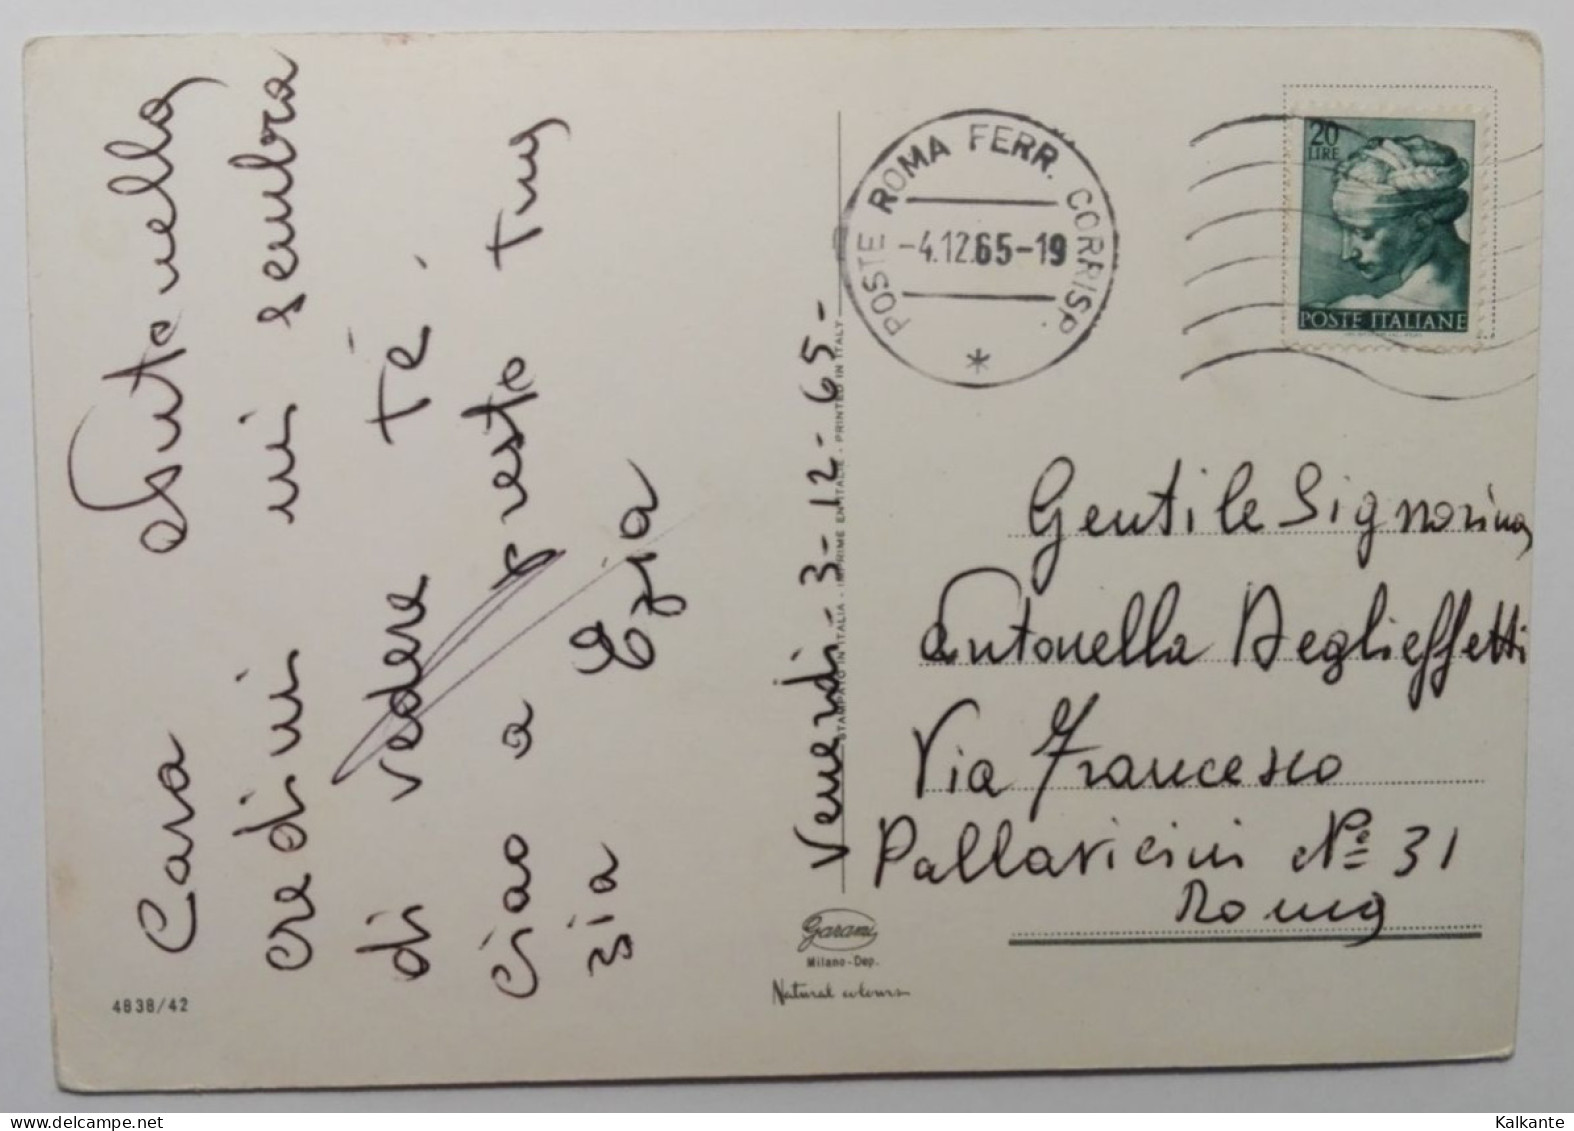 Cara Antonella
credimi mi sembra
di vedere Te.
ciao a presto tua
zia Ezia
Venerdi - 3-12-65-
STAMPATO IN ITALIA - IMPRIME EN ITALIE - PRINTED IN ITALY
POSTE ROMA FERR. CORRISP.
-4.12.65-19
20
LIRE
POSTE ITALIANE
Gentile Signorina
Antonella Deglieffetti
Via Francesco
Pallavicini N° 31
Roma
Garami
Milano-Dep.
Natural colours
4838/42
Kalkante